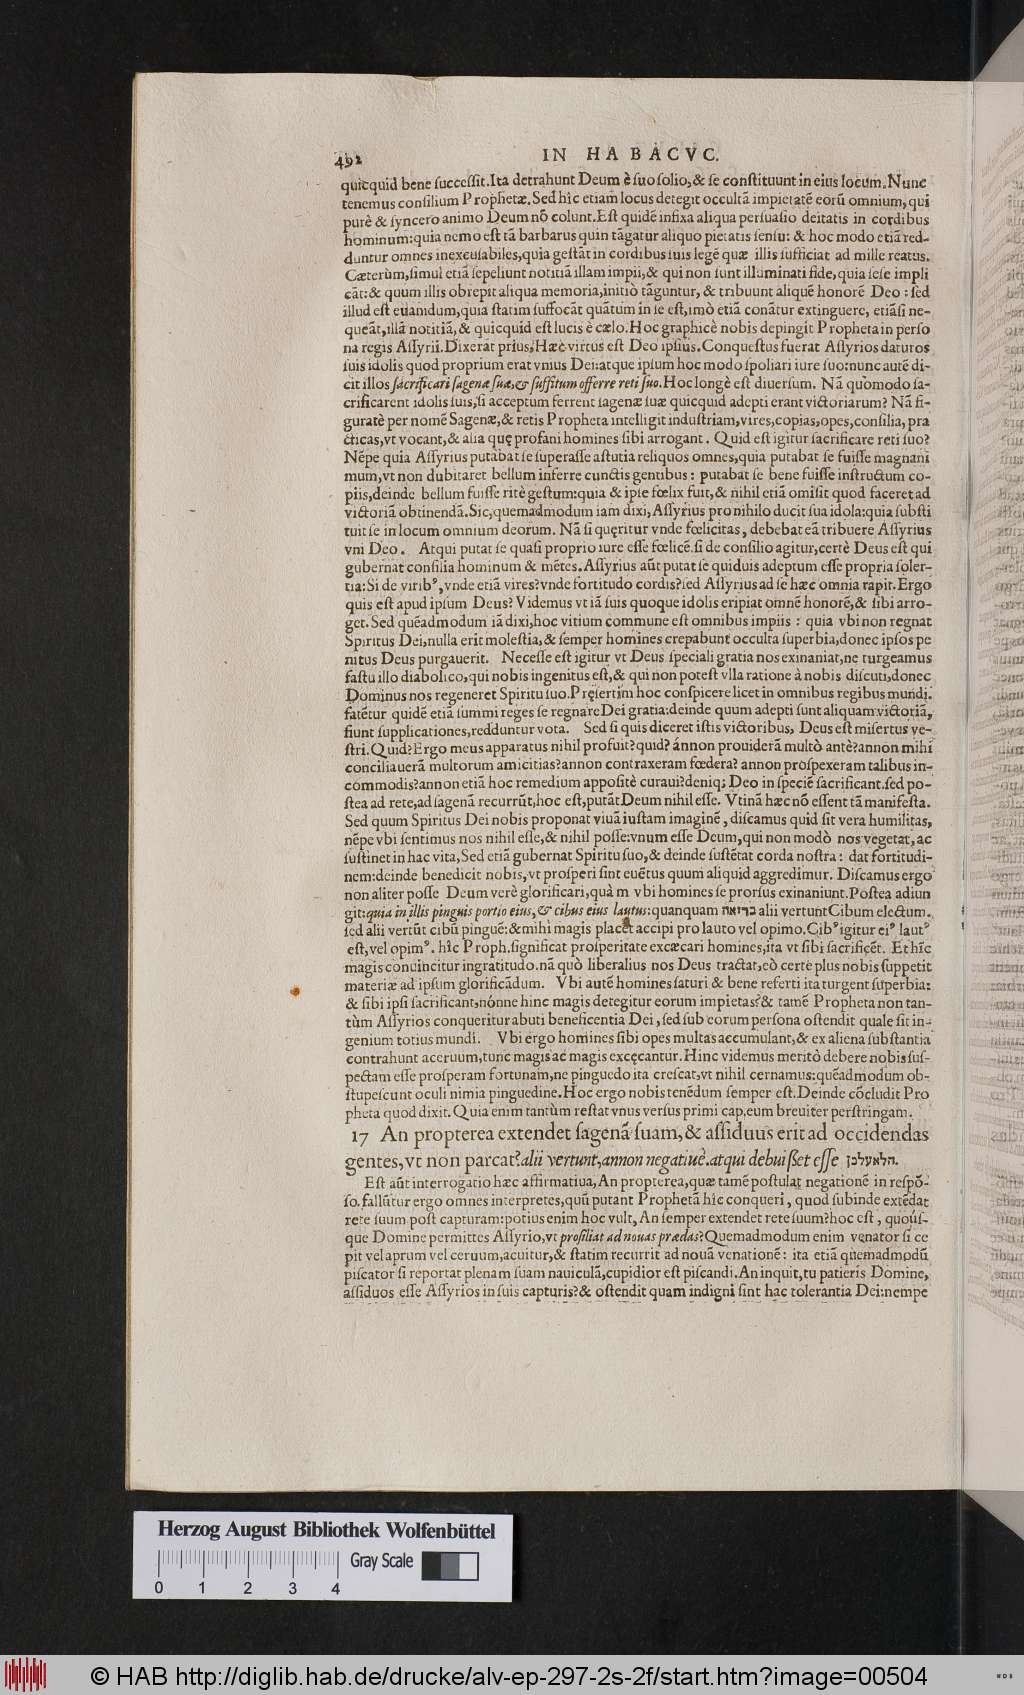 492 IN HABACVC.
quicquid bene succeſſit. Ita detrahunt Deum è ſuo ſolio, & ſe conſtituunt in eius locum. Nunc
tenemus conſilium Prophetæ. Sed hîc etiam locus detegit occultã impietatẽ eorũ omnium, qui
purè & ſyncero animo Deum nõ colunt. Eſt quidẽ infixa aliqua perſuaſio deitatis in cordibus
hominum: quia nemo eſt tã barbarus quin tãgatur aliquo pietatis ſenſu: & hoc modo etiã red-
duntur omnes inexcuſabiles, quia geſtãt in cordibus ſuis legẽ quæ illis ſufficiat ad mille reatus.
Cæterùm, ſimul etiã ſepeliunt notitiã illam impii, & qui non ſunt illuminati fide, quia ſeſe impli
cãt: & quum illis obrepit aliqua memoria, initiò tãguntur, & tribuunt aliquẽ honorẽ Deo: ſed
illud eſt euanidum, quia ſtatim ſuffocãt quãtum in ſe eſt, imò etiã conãtur extinguere, etiãſi ne-
queãt, illã notitiã, & quicquid eſt lucis è cælo. Hoc graphicè nobis depingit Propheta in perſo
na regis Aſſyrii. Dixerat prius, Hæc virtus eſt Deo ipſius. Conqueſtus fuerat Aſſyrios daturos
ſuis idolis quod proprium erat vnius Dei: atque ipſum hoc modo ſpoliari iure ſuo: nunc autẽ di-
cit illos ſacrificari ſagenæ ſuæ, & ſuffitum offerre reti ſuo. Hoc longè eſt diuerſum. Nã quòmodo ſa-
crificarent idolis ſuis, ſi acceptum ferrent ſagenæ ſuæ quicquid adepti erant victoriarum? Nã fi-
guratè per nomẽ Sagenæ, & retis Propheta intelligit induſtriam, vires, copias, opes, conſilia, pra
cticas, vt vocant, & alia quę profani homines ſibi arrogant. Quid eſt igitur ſacrificare reti ſuo?
Nẽpe quia Aſſyrius putabat ſe ſuperaſſe aſtutia reliquos omnes, quia putabat ſe fuiſſe magnani
mum, vt non dubitaret bellum inferre cunctis gentibus: putabat ſe bene fuiſſe inſtructum co-
piis, deinde bellum fuiſſe ritè geſtum: quia & ipſe fœlix fuit, & nihil etiã omiſit quod faceret ad
victoriã obtinendã. Sic, quemadmodum iam dixi, Aſſyrius pro nihilo ducit ſua idola: quia ſubſti
tuit ſe in locum omnium deorum. Nã ſi quęritur vnde fœlicitas, debebat eã tribuere Aſſyrius
vni Deo. Atqui putat ſe quaſi proprio iure eſſe fœlicẽ. ſi de conſilio agitur, certè Deus eſt qui
gubernat conſilia hominum & mẽtes. Aſſyrius aũt putat ſe quiduis adeptum eſſe propria ſoler-
tia: Si de virib⁹, vnde etiã vires? vnde fortitudo cordis? ſed Aſſyrius ad ſe hæc omnia rapit. Ergo
quis eſt apud ipſum Deus? Videmus vt iã ſuis quoque idolis eripiat omnẽ honorẽ, & ſibi arro-
get. Sed quẽadmodum iã dixi, hoc vitium commune eſt omnibus impiis: quia vbi non regnat
Spiritus Dei, nulla erit moleſtia, & ſemper homines crepabunt occulta ſuperbia, donec ipſos pe
nitus Deus purgauerit. Neceſſe eſt igitur vt Deus ſpeciali gratia nos exinaniat, ne turgeamus
faſtu illo diabolico, qui nobis ingenitus eſt, & qui non poteſt vlla ratione à nobis diſcuti, donec
Dominus nos regeneret Spiritu ſuo. Pręſertim hoc conſpicere licet in omnibus regibus mundi.
fatẽtur quidẽ etiã ſummi reges ſe regnare Dei gratia: deinde quum adepti ſunt aliquam victoriã,
fiunt ſupplicationes, redduntur vota. Sed ſi quis diceret iſtis victoribus, Deus eſt miſertus ve-
ſtri. Quid? Ergo meus apparatus nihil profuit? quid? ánnon prouiderã multò antè? annon mihi
conciliauerã multorum amicitias? annon contraxeram fœdera? annon proſpexeram talibus in-
commodis? annon etiã hoc remedium appoſitè curaui? deniq; Deo in ſpeciẽ ſacrificant. ſed po-
ſtea ad rete, ad ſagenã recurrũt, hoc eſt, putãt Deum nihil eſſe. Vtinã hæc nõ eſſent tã manifeſta.
Sed quum Spiritus Dei nobis proponat viuã iuſtam imaginẽ, diſcamus quid ſit vera humilitas,
nẽpe vbi ſentimus nos nihil eſſe, & nihil poſſe: vnum eſſe Deum, qui non modò nos vegetat, ac
ſuſtinet in hac vita, Sed etiã gubernat Spiritu ſuo, & deinde ſuſtẽtat corda noſtra: dat fortitudi-
nem: deinde benedicit nobis, vt proſperi ſint euẽtus quum aliquid aggredimur. Diſcamus ergo
non aliter poſſe Deum verè glorificari, quàm vbi homines ſe prorſus exinaniunt. Poſtea adiun
git: quia in illis pinguis portio eius, & cibus eius lautus: quanquam בריאה alii vertunt Cibum electum.
ſed alii vertũt cibũ pinguẽ: & mihi magis placet accipi pro lauto vel opimo. Cib⁹ igitur ei⁹ laut⁹
eſt, vel opim⁹. hîc Proph. ſignificat proſperitate excæcari homines, ita vt ſibi ſacrificẽt. Et hîc
magis conuincitur ingratitudo. nã quò liberalius nos Deus tractat, eò certè plus nobis ſuppetit
materiæ ad ipſum glorificãdum. Vbi autẽ homines ſaturi & bene referti ita turgent ſuperbia:
& ſibi ipſi ſacrificant, nónne hinc magis detegitur eorum impietas? & tamẽ Propheta non tan-
tùm Aſſyrios conqueritur abuti beneficentia Dei, ſed ſub eorum perſona oſtendit quale ſit in-
genium totius mundi. Vbi ergo homines ſibi opes multas accumulant, & ex aliena ſubſtantia
contrahunt aceruum, tunc magis ac magis excęcantur. Hinc videmus meritò debere nobis ſuſ-
pectam eſſe proſperam fortunam, ne pinguedo ita creſcat, vt nihil cernamus: quẽadmodum ob-
ſtupeſcunt oculi nimia pinguedine. Hoc ergo nobis tenẽdum ſemper eſt. Deinde cõcludit Pro
pheta quod dixit. Quia enim tantùm reſtat vnus verſus primi cap, eum breuiter perſtringam.
17 An propterea extendet ſagenã ſuam, & aſſiduus erit ad occidendas
gentes, vt non parcat? alii vertunt, annon negatiuè. atqui debuiſſet eſſe הלאעלכן.
Eſt aũt interrogatio hæc affirmatiua, An propterea, quæ tamẽ poſtulat negationẽ in reſpõ-
ſo. fallũtur ergo omnes interpretes, quũ putant Prophetã hîc conqueri, quod ſubinde extẽdat
rete ſuum poſt capturam: potius enim hoc vult, An ſemper extendet rete ſuum? hoc eſt, quoúſ-
que Domine permittes Aſſyrio, vt proſiliat ad nouas prædas? Quemadmodum enim venator ſi ce
pit vel aprum vel ceruum, acuitur, & ſtatim recurrit ad nouã venationẽ: ita etiã quẽmadmodũ
piſcator ſi reportat plenam ſuam nauiculã, cupidior eſt piſcandi. An inquit, tu patieris Domine,
aſſiduos eſſe Aſſyrios in ſuis capturis? & oſtendit quam indigni ſint hac tolerantia Dei: nempe
Herzog August Bibliothek Wolfenbüttel
Gray Scale
0 1 2 3 4
© HAB http://diglib.hab.de/drucke/alv-ep-297-2s-2f/start.htm?image=00504